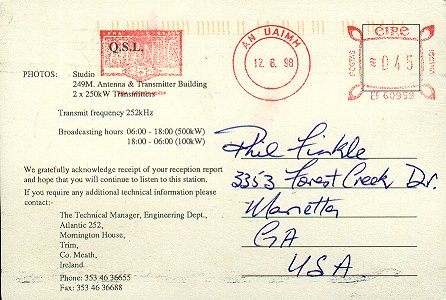 Q.S.L.
AN UAIMH
12. 6. 98
éire
045
PB 60959
PHOTOS: Studio
249M. Antenna & Transmitter Building
2 x 250kW Transmitters
Transmit frequency 252kHz
Broadcasting hours 06:00 - 18:00 (500kW)
18:00 - 06:00 (100kW)
We gratefully acknowledge receipt of your reception report
and hope that you will continue to listen to this station.
If you require any additional technical information please
contact:-
The Technical Manager, Engineering Dept.,
Atlantic 252,
Mornington House,
Trim,
Co. Meath,
Ireland.
Phone: 353 46 36655
Fax: 353 46 36688
Phil Finkle
3353 Forest Creek Dr.
Marietta
GA
USA